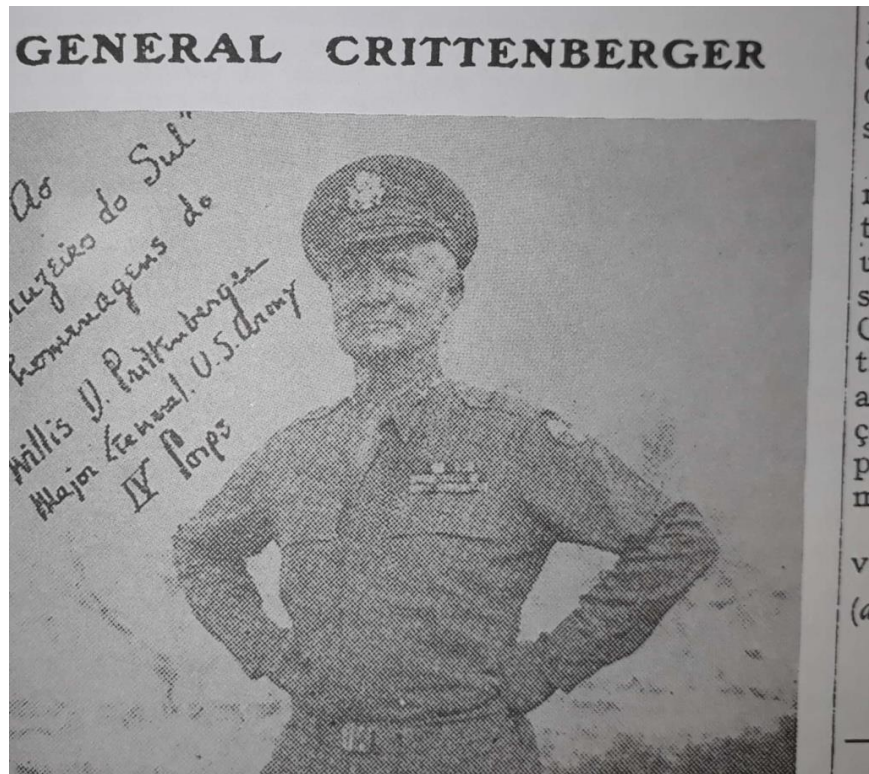 GENERAL CRITTENBERGER
Ao
Cruzeiro do Sul"
homenagens do
Willis D. Crittenberger
Major General. U.S. Army
IV Corps
ç
p
m
v
(a